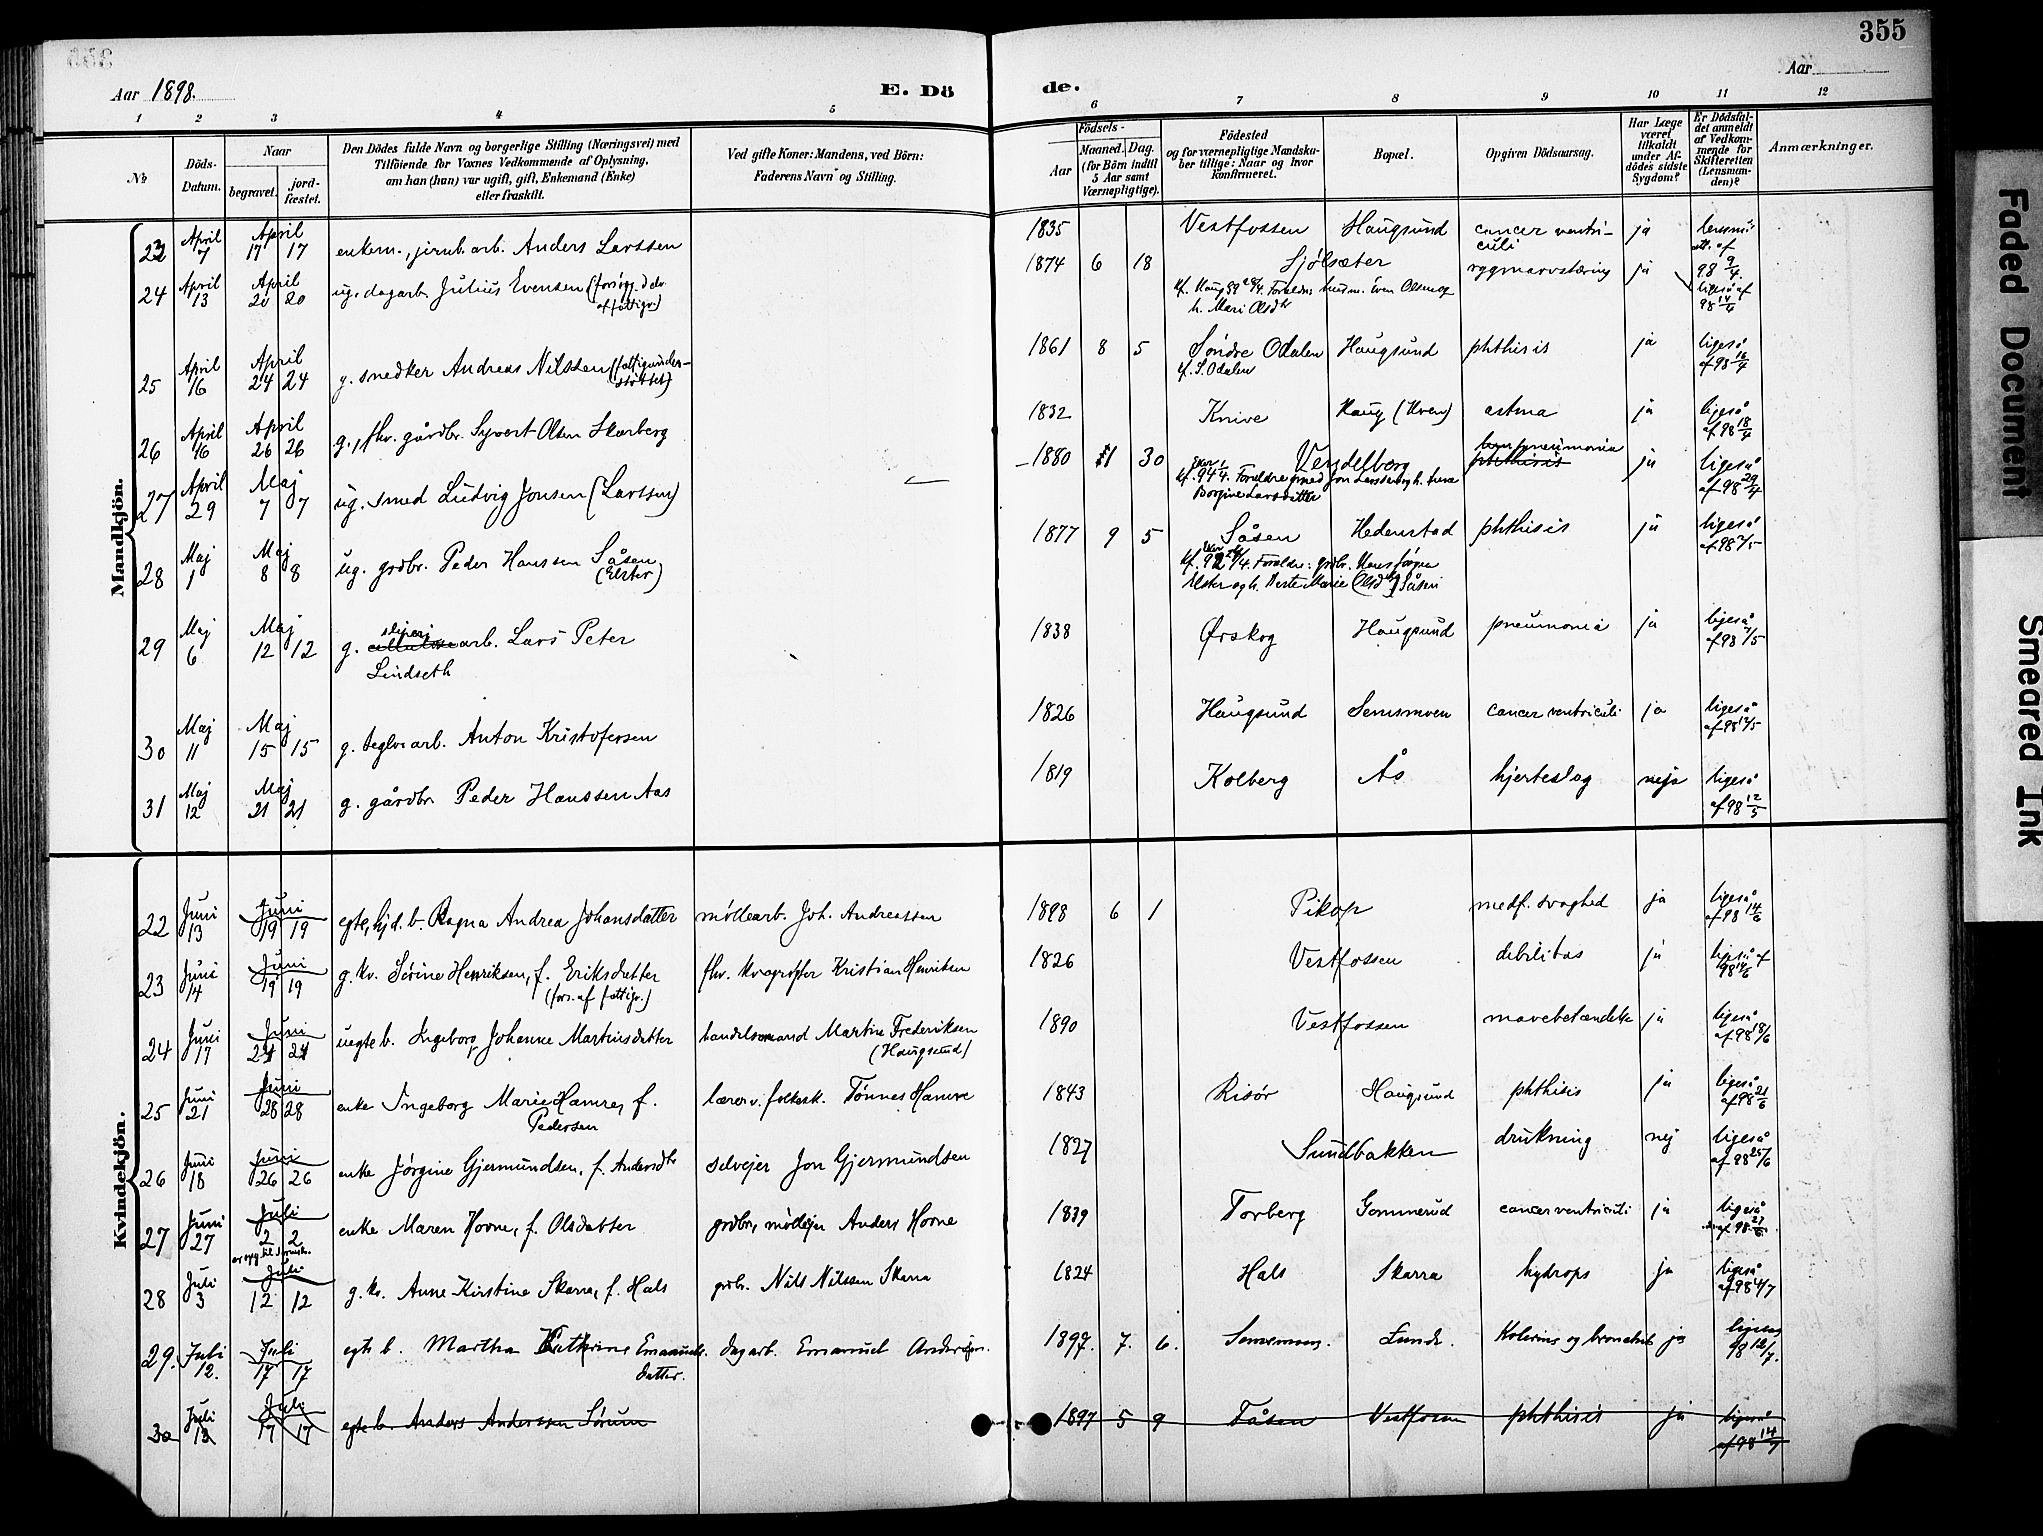 355
Aar 1898.
E. Dö
de.
Aar
1 2 3 4 5 6 7 8 9 10 11 12
No
Döds-
Datum.
Naar
begravet.
jord-
fæstet.
Den Dödes fulde Navn og borgerlige Stilling (Næringsvei) med
Tilföiende for Voxnes Vedkommende af Oplysning,
om han (hun) var ugift, gift, Enkemand (Enke)
eller fraskilt.
Ved gifte Koner: Mandens, ved Börn:
Faderens Navn og Stilling.
Födsels-
Aar
Maaned. Dag.
(for Börn indtil
5 Aar samt
Værnepligtige).
Födested
og for værnepligtige Mandska-
ber tillige: Naar og hvor
konfirmeret.
Bopæl.
Opgiven Dödsaarsag.
Har Læge
været
tilkaldt
under Af-
dödes sidste
Sygdom?
Er Dödsfal-
det anmeldt
af Vedkom-
mende for
Skifteretten
(Lensman-
den)?
Anmærkninger.
Mandkjön.
23 April 7 April 17 17 enkem., jernb. arb. Anders Larssen 1835 Vestfossen Haugsund cancer ventri-
culi ja
att. af
98 9/4
24 April 13 April 20 20 ug. dagarb. Julius Evensen (forsørg. delv.
af fattigv.) 1874 6 18 Sjølsæter rygmarvstæring ja ligeså af
98 14/4
h. Mari Olsdtr
25 April 16 April 24 24 g. snedker Andreas Nilssen (fattigunder-
støttet) 1861 8 5 Søndre Odalen Haugsund phthisis ja ligeså
af 98 16/4
kf. S. Odalen
26 April 16 April 26 26 g., fhv. gårdbr. Syvert Olsen Skarberg 1832 Knive Haug (Hven) astma ja ligeså
af 98 18/4
27 April 29 Maj 7 7 ug. smed Ludvig Jonsen (Larssen) 1880 1 30 Vendelborg pneumonia
phthisis ja ligeså
af 98 29/4
28 Maj 1 Maj 8 8 ug. grdbr. Peder Hanssen Såsen
(Elster) 1877 9 5 Såsen Hedenstad phthisis ja ligeså
af 98 2/5
29 Maj 6 Maj 12 12 g. sliperi
cellulose arb. Lars Peter
Lindseth 1838 Ørskog Haugsund pneumonia ja ligeså
af 98 7/5
30 Maj 11 Maj 15 15 g. teglv. arb. Anton Kristofersen 1826 Haugsund Semsmoen cancer ventriculi ja ligeså
af 98 12/5
31 Maj 12 Maj 21 21 g. gårdbr. Peder Hanssen Aas 1819 Kolberg Ås hjerteslag nej ligeså
af 98 12/5
Kvindekjön.
22 Juni 13 Juni 19 19 egte, hjd. b. Ragna Andrea Johansdatter møllearb. Joh. Andreassen 1898 6 1 Pikop medf. svaghed ja ligeså
af 98 14/6
23 Juni 14 Juni 19 19 g. kv. Sørine Henriksen, f. Eriksdatter
(fors. af fattigv.) fhv. Kristian Henriksen 1826 Vestfossen debilitas ja ligeså af
98 14/6
24 Juni 17 Juni 24 24 uegte b. Ingeborg Johanne Martinsdatter handelsmand Martin Frederiksen
(Haugsund) 1890 Vestfossen mavebetændelse ja ligeså
af 98 18/6
25 Juni 21 Juni 28 28 enke Ingeborg Marie Hamre, f.
Pedersen lærer v. folkesk. Tønnes Hamre 1843 Risør Haugsund phthisis ja ligeså
af 98 21/6
26 Juni 18 Juni 26 26 enke Jørgine Gjermundsen, f. Andersdtr selvejer Jon Gjermundsen 1827 Sundbakken drukning nej ligeså
af 98 25/6
27 Juni 27 Juli 2 2 enke Maren Horne, f. Olsdatter grdbr., mølleejer Anders Horne 1839 Torberg Gommerud cancer ventriculi ja ligeså
af 98 27/6
28 Juli 3 Juli 12 12 g. kv. Anne Kirstine Skarra, f. Hals grdb. Nils Nilssen Skarra 1824 Hals Skarra hydrops ja ligeså
af 98 4/7
29. Juli 12. Juli 17 17 egte b. Martha Kathrine Emanuels-
datter. dagarb. Emanuel Andersen. 1897. 7. 6. Semsmoen. Lunde. Kolerine og bronchit ja ligeså
98 12/7.
30 Juli 13 Juli 17 17 egte b. Anders Anderssen Sørum 1897 5 9 Tåsen Vestfossen phthisis ja ligeså
af 98 14/7
Faded Document
Smeared Ink